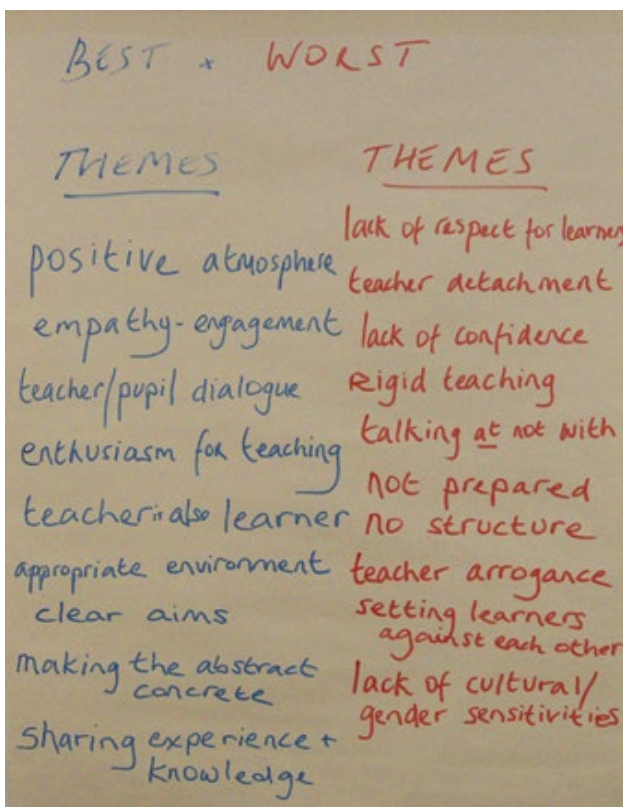 BEST + WORST
THEMES
positive atmosphere
empathy-engagement
teacher/pupil dialogue
enthusiasm for teaching
teacher is also learner
appropriate environment
clear aims
making the abstract
concrete
sharing experience +
knowledge
THEMES
lack of respect for learners
teacher detachment
lack of confidence
Rigid teaching
talking at not with
not prepared
no structure
teacher arrogance
setting learners
against each other
lack of cultural/
gender sensitivities